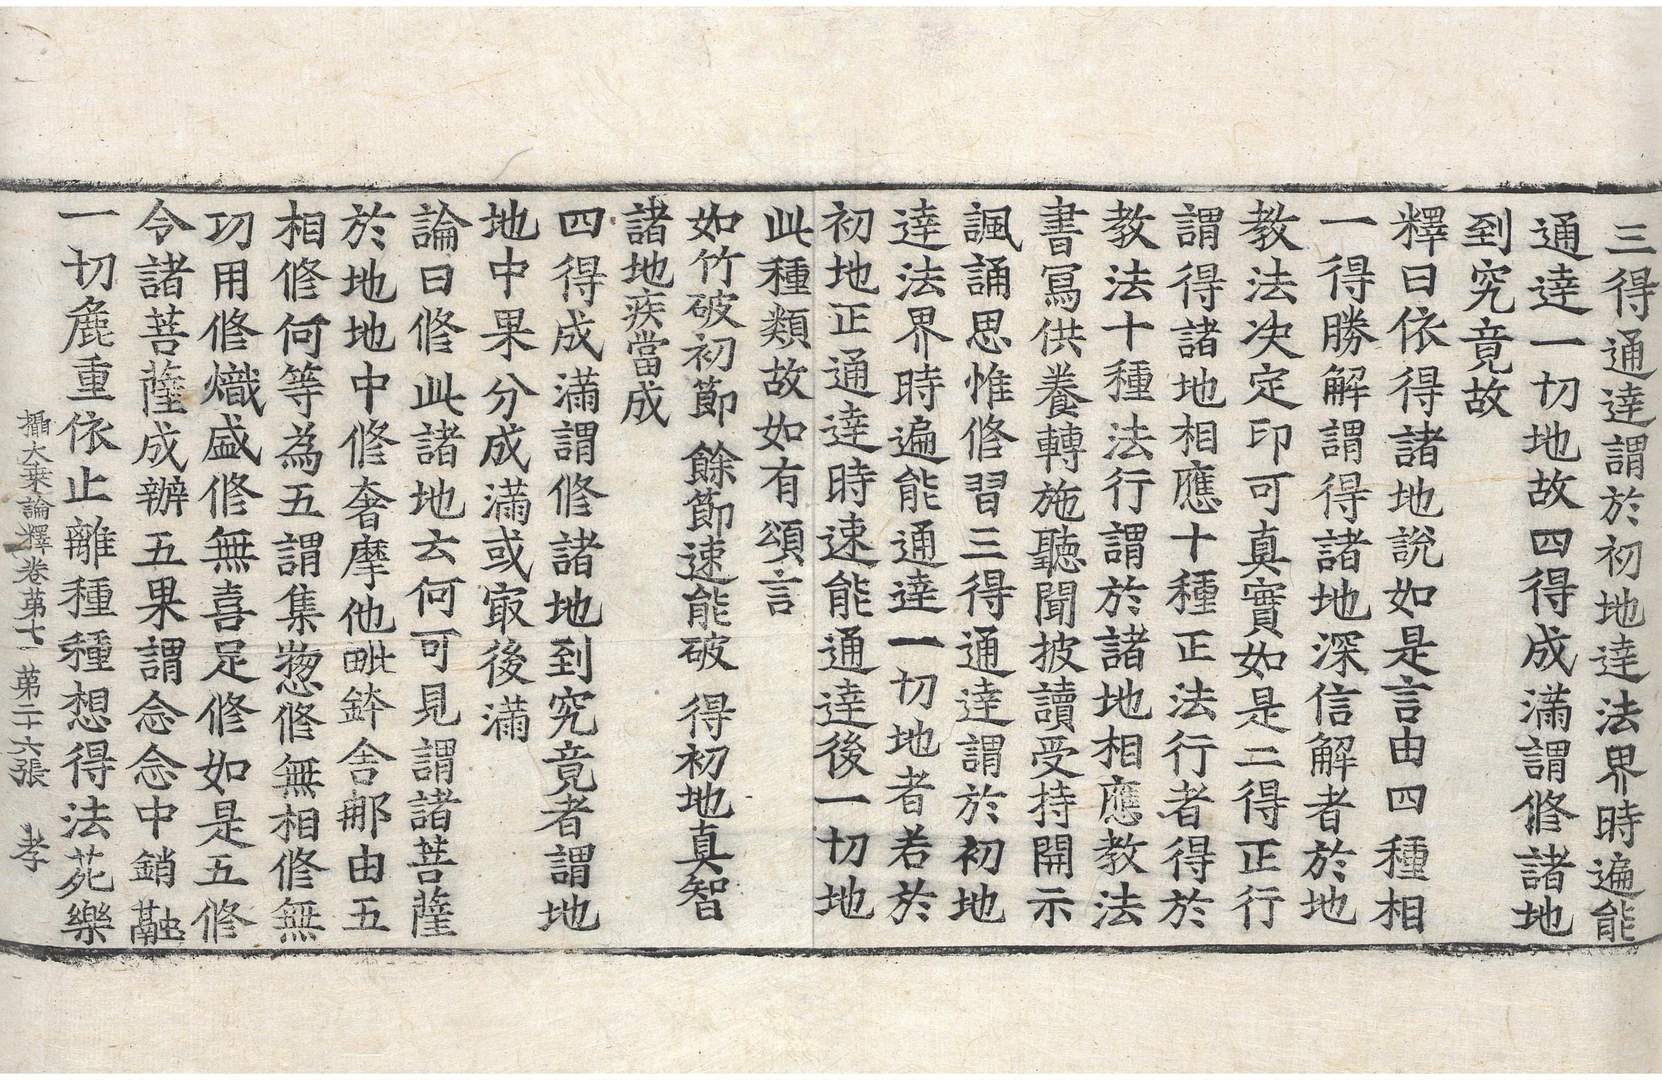 三得通達謂於初地達法界時遍能
通達一切地故四得成滿謂修諸地
到究竟故
釋曰依得諸地說如是言由四種相
一得勝解謂得諸地深信解者於地
教法决定印可真實如是二得正行
謂得諸地相應十種正法行者得於
教法十種法行謂於諸地相應教法
書寫供養轉施聽聞披讀受持開示
諷誦思惟修習三得通達謂於初地
達法界時遍能通達一切地者若於
初地正通達時速能通達後一切地
此種類故如有頌言
如竹破初節 餘節速能破 得初地真智
諸地疾當成
四得成滿謂修諸地到究竟者謂地
地中果分成滿或㝡後滿
論曰修此諸地云何可見謂諸菩薩
於地地中修奢摩他毗鉢舍那由五
相修何等為五謂集惣修無相修無
功用修熾盛修無喜足修如是五修
令諸菩薩成辦五果謂念念中銷融
一切麁重依止離種種想得法苑樂
攝大乘論釋卷苐七 苐二十六張 孝